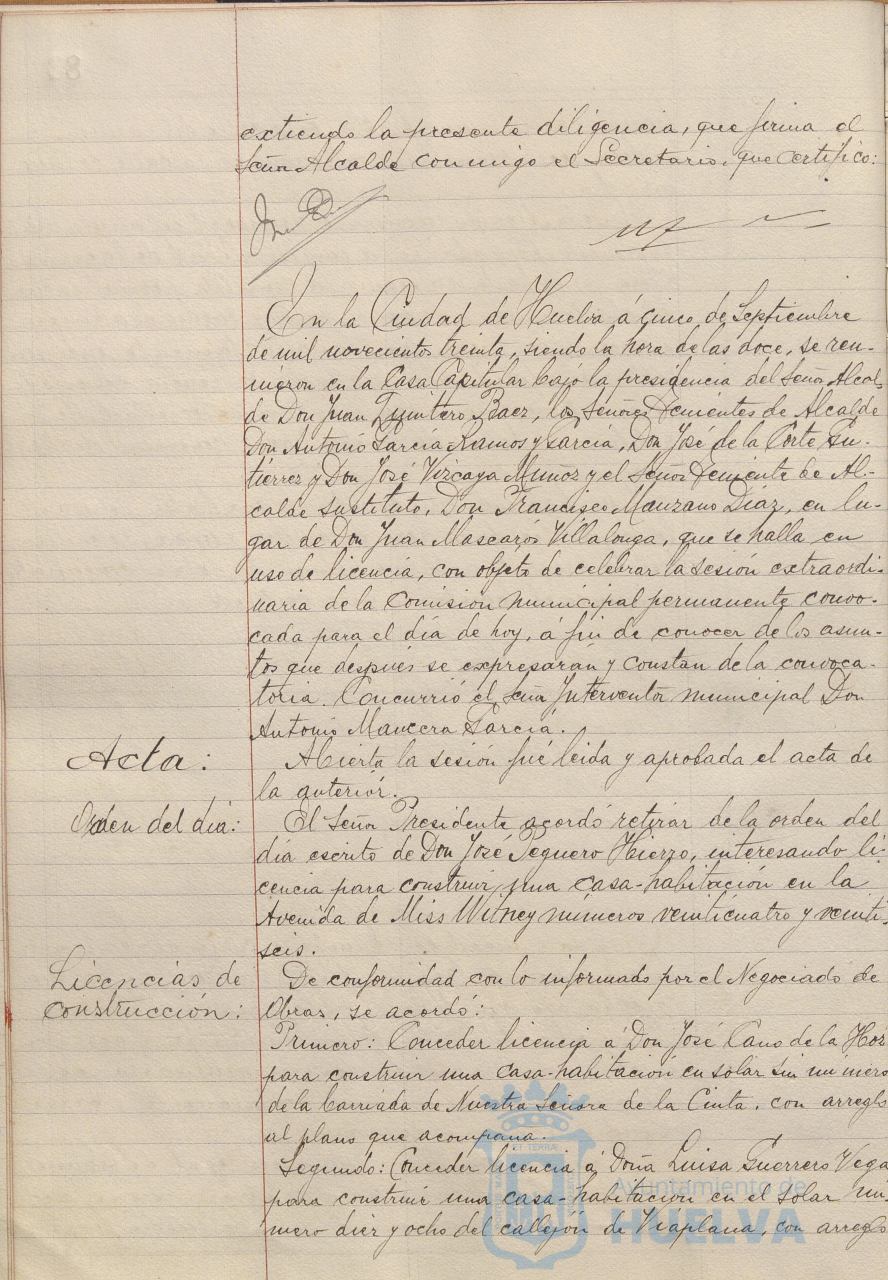 extiendo la presente diligencia, que firma el
Señor Alcalde conmigo el Secretario, que certifico:
En la Ciudad de Huelva á cinco de Septiembre
de mil novecientos treinta, siendo la hora de las doce, se reu-
nieron en la Casa Capitular bajo la presidencia del Señor Alcal-
de Don Juan Quintero Baez, los Señores Tenientes de Alcalde
Don Antonio García Ramos y García, Don José de la Corte Gu-
tierrez y Don José Vizcaya Muñoz y el Señor Teniente de Al-
calde sustituto, Don Francisco Manzano Díaz, en lu-
gar de Don Juan Mascarós Villalonga, que se halla en
uso de licencia, con objeto de celebrar la sesión extraordi-
naria de la Comisión municipal permanente convo-
cada para el día de hoy, á fin de conocer de los asun-
tos que después se expresarán y constan de la convoca-
toria. Concurrió el Señor Interventor municipal Don
Antonio Mancera García.
Acta:
Abierta la sesión fué leida y aprobada el acta de
la anterior.
Orden del día:
El Señor Presidente acordó retirar de la orden del
día escrito de Don José Peguero Hierro, interesando li-
cencia para construir una casa-habitación en la
Avenida de Miss Witney números veinticuatro y veinti-
seis.
Licencias de
construcción:
De conformidad con lo informado por el Negociado de
Obras, se acordó:
Primero: Conceder licencia á Don José Cano de la Hoz
para construir una casa-habitación en solar sin número
de la barriada de Nuestra Señora de la Cinta, con arreglo
al plano que acompaña.
Segundo: Conceder licencia á Doña Luisa Guerrero Vega
para construir una casa-habitación en el solar nú-
mero diez y ocho del callejón de Viaplana, con arreglo
Ayuntamiento de
HUELVA